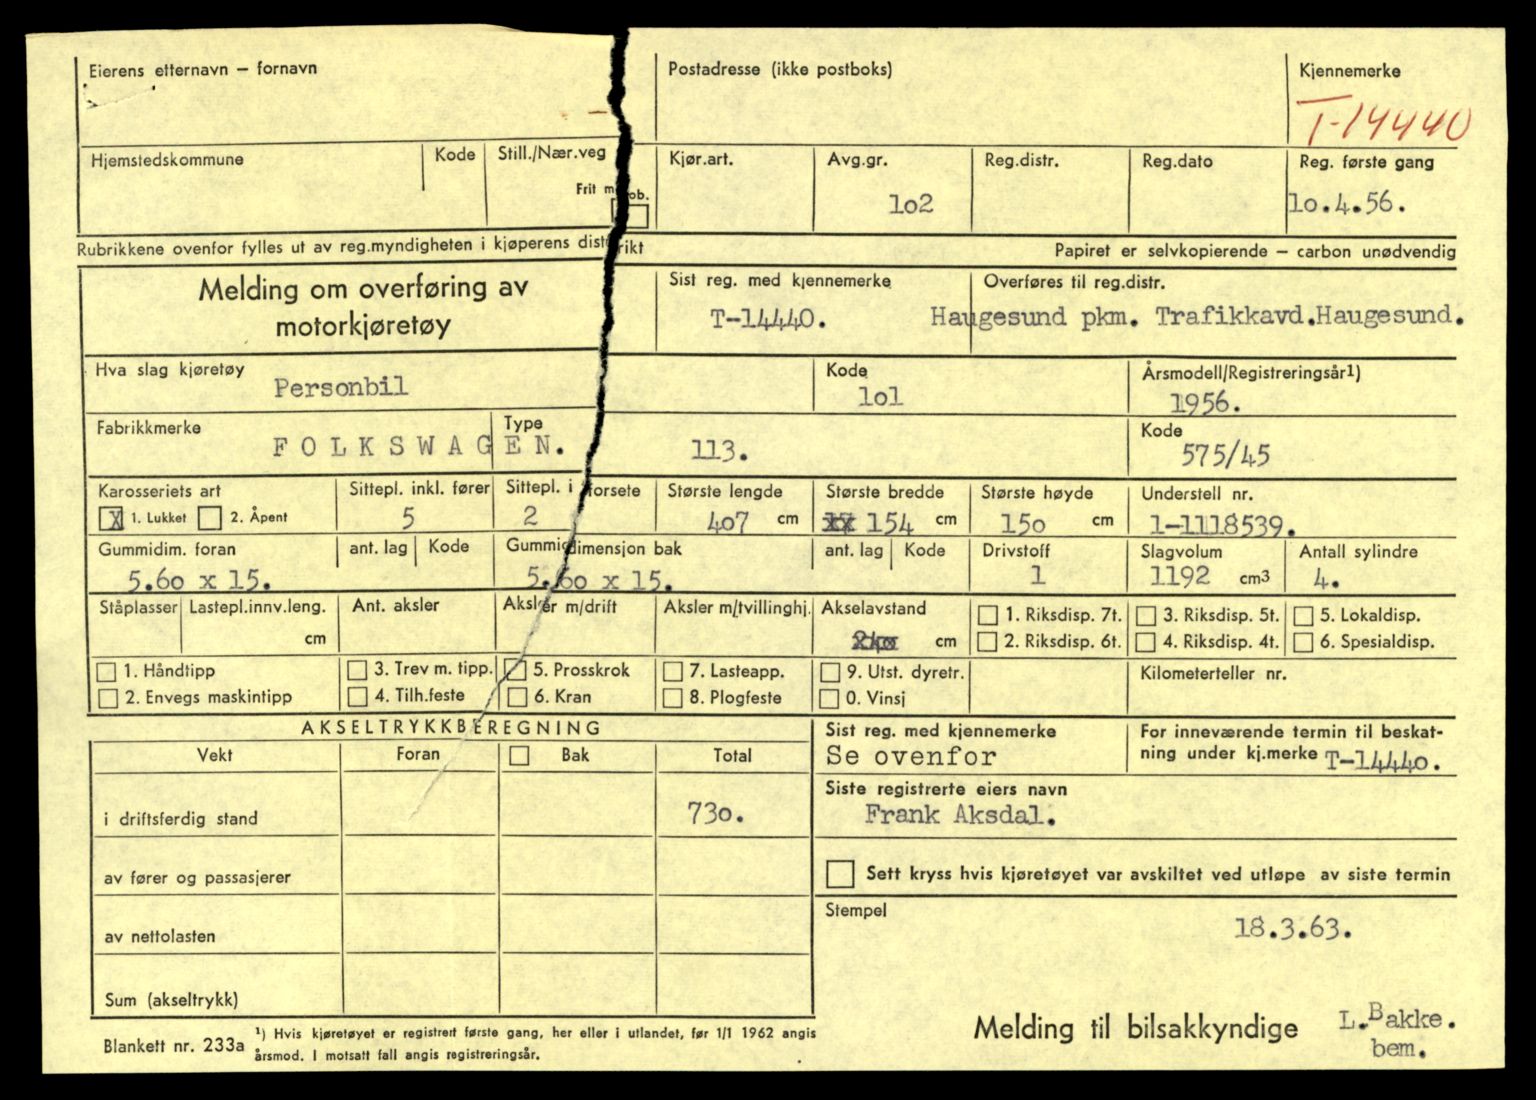 Eierens etternavn — fornavn
Postadresse (ikke postboks)
Kjennemerke
T-14440
Hjemstedskommune
Kode
Still./Nær.veg
Frit m ob.
Kjør.art.
Avg.gr.
Reg.distr.
Reg.dato
Reg. første gang
lo2
lo.4.56.
Rubrikkene ovenfor fylles ut av reg.myndigheten i kjøperens distrikt
Papiret er selvkopierende — carbon unødvendig
Melding om overføring av
motorkjøretøy
Sist reg. med kjennemerke
T-14440.
Overføres til reg.distr.
Haugesund pkm. Trafikkavd.Haugesund.
Hva slag kjøretøy
Personbil
Kode
lol
Årsmodell/Registreringsår1)
1956.
Fabrikkmerke
Type
FOLKSWAGEN.
113.
Kode
575/45
Karosseriets art
X 1. Lukket 2. Åpent
Sittepl. inkl. fører
5
Sittepl. i forsete
2
Største lengde
4o7 cm
Største bredde
154 cm
Største høyde
15o cm
Understell nr.
1-1118539.
Gummidim. foran
5.6o x 15.
ant. lag
Kode
Gummidimensjon bak
5.6o x 15.
ant. lag
Kode
Drivstoff
1
Slagvolum
1192 cm3
Antall sylindre
4.
Ståplasser
Lastepl.innv.leng.
cm
Ant. aksler
Aksler m/drift
Aksler m/tvillinghj.
Akselavstand
cm
1. Riksdisp. 7t.
2. Riksdisp. 6t.
3. Riksdisp. 5t.
4. Riksdisp. 4t.
5. Lokaldisp.
6. Spesialdisp.
1. Håndtipp
2. Envegs maskintipp
3. Trev m. tipp.
4. Tilh.feste
5. Prosskrok
6. Kran
7. Lasteapp.
8. Plogfeste
9. Utst. dyretr.
0. Vinsj
Kilometerteller nr.
AKSELTRYKKBEREGNING
Vekt
Foran
Bak
Total
i driftsferdig stand
73o.
av fører og passasjerer
av nettolasten
Sum (akseltrykk)
Sist reg. med kjennemerke
Se ovenfor
For inneværende termin til beskat-
ning under kj.merke T-1444o.
Siste registrerte eiers navn
Frank Aksdal.
Sett kryss hvis kjøretøyet var avskiltet ved utløpe av siste termin
Stempel
18.3.63.
Blankett nr. 233a
1) Hvis kjøretøyet er registrert første gang, her eller i utlandet, før 1/1 1962 angis
årsmod. I motsatt fall angis registreringsår.
Melding til bilsakkyndige
L.Bakke.
bem.